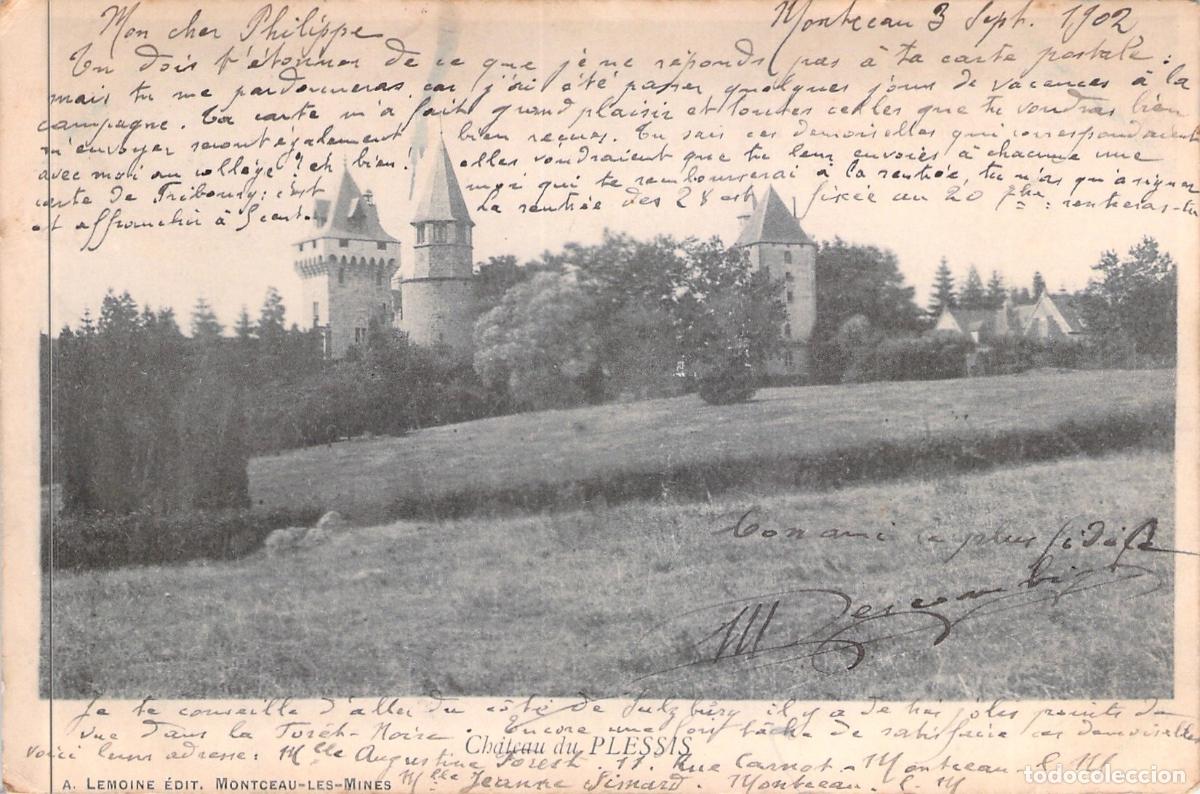 Montceau 3 Sept. 1902
Mon cher Philippe
Tu dois t'étonner de ce que je ne réponds pas à ta carte postale :
mais tu me pardonneras car j'ai été passer quelques jours de vacances à la
campagne. Ta carte m'a fait grand plaisir et toutes celles que tu voudras bien
m'envoyer seront également bien reçues. Tu sais ces demoiselles qui correspondaient
avec moi au collège ? eh bien ! elles voudraient que tu leur envoies à chacune une
carte de Fribourg ; c'est moi qui te rembourserai à la rentrée, tu n'as qu'à signer
et affranchir à La rentrée des 28 est fixée au 20 rentreras-tu
Ton ami le plus fidèle
M Descombi
Je te conseille d'aller du côté de Sulzburg il y a de très jolis points de
vue dans la Forêt-Noire. Encore une fois tâche de satisfaire ces demoiselles
voici leurs adresse : Mlle Augustine Forest. 11. Rue Carnot - Montceau - l. M.
Mlle Jeanne Simard. Montceau. l. M
Château du PLESSIS
A. LEMOINE ÉDIT. MONTCEAU-LES-MINES
todocoleccion